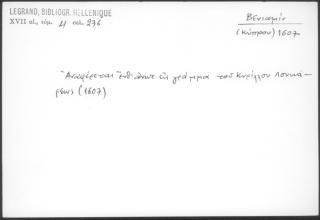 LEGRAND, BIBLIOGR. HELLENIQUE
XVII αἰ., τόμ. 4 σελ. 276
Βενιαμὶν
(Κύπρου) 1607
Ἀναφέρεται ἐνθ' ἀνωτ. εἰς γράμμα τοῦ Κυρίλλου Λουκά-
ρεως (1607)